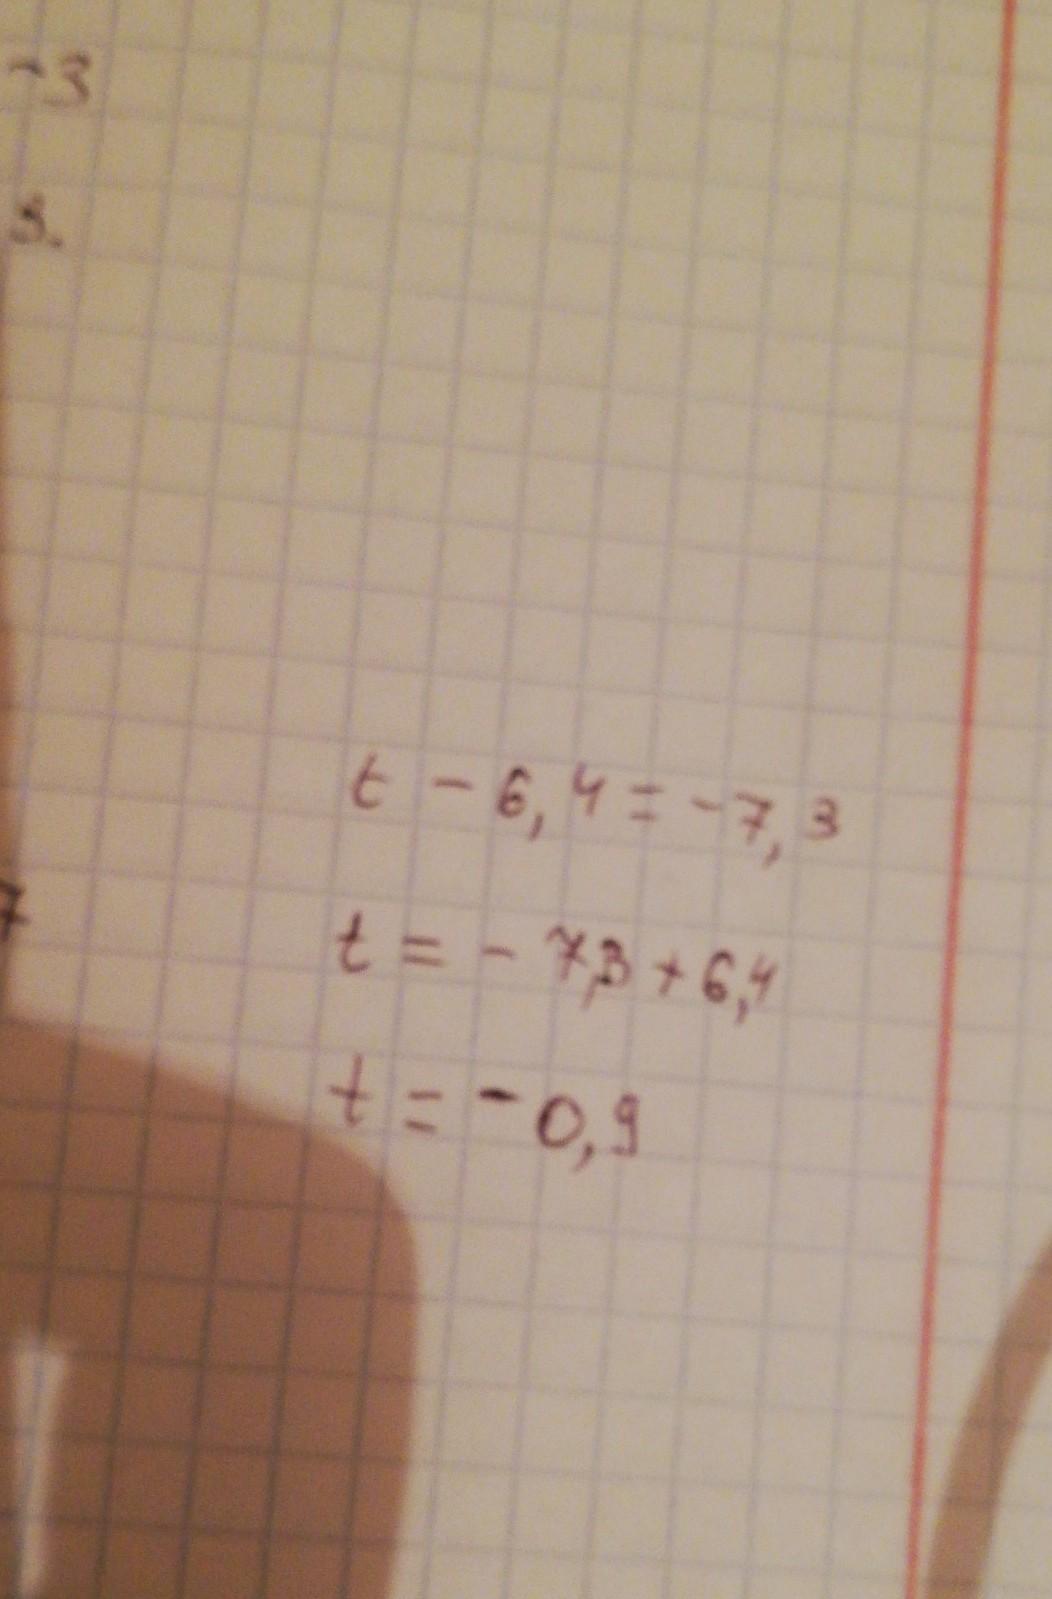 -3
3.
t - 6,4 = -7,3
7
t = - 7,3 + 6,4
t = -0,9